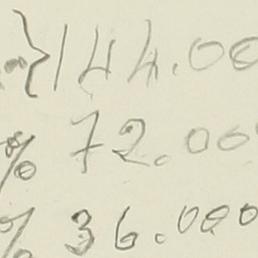 }144.00
% 72.00
% 36.000